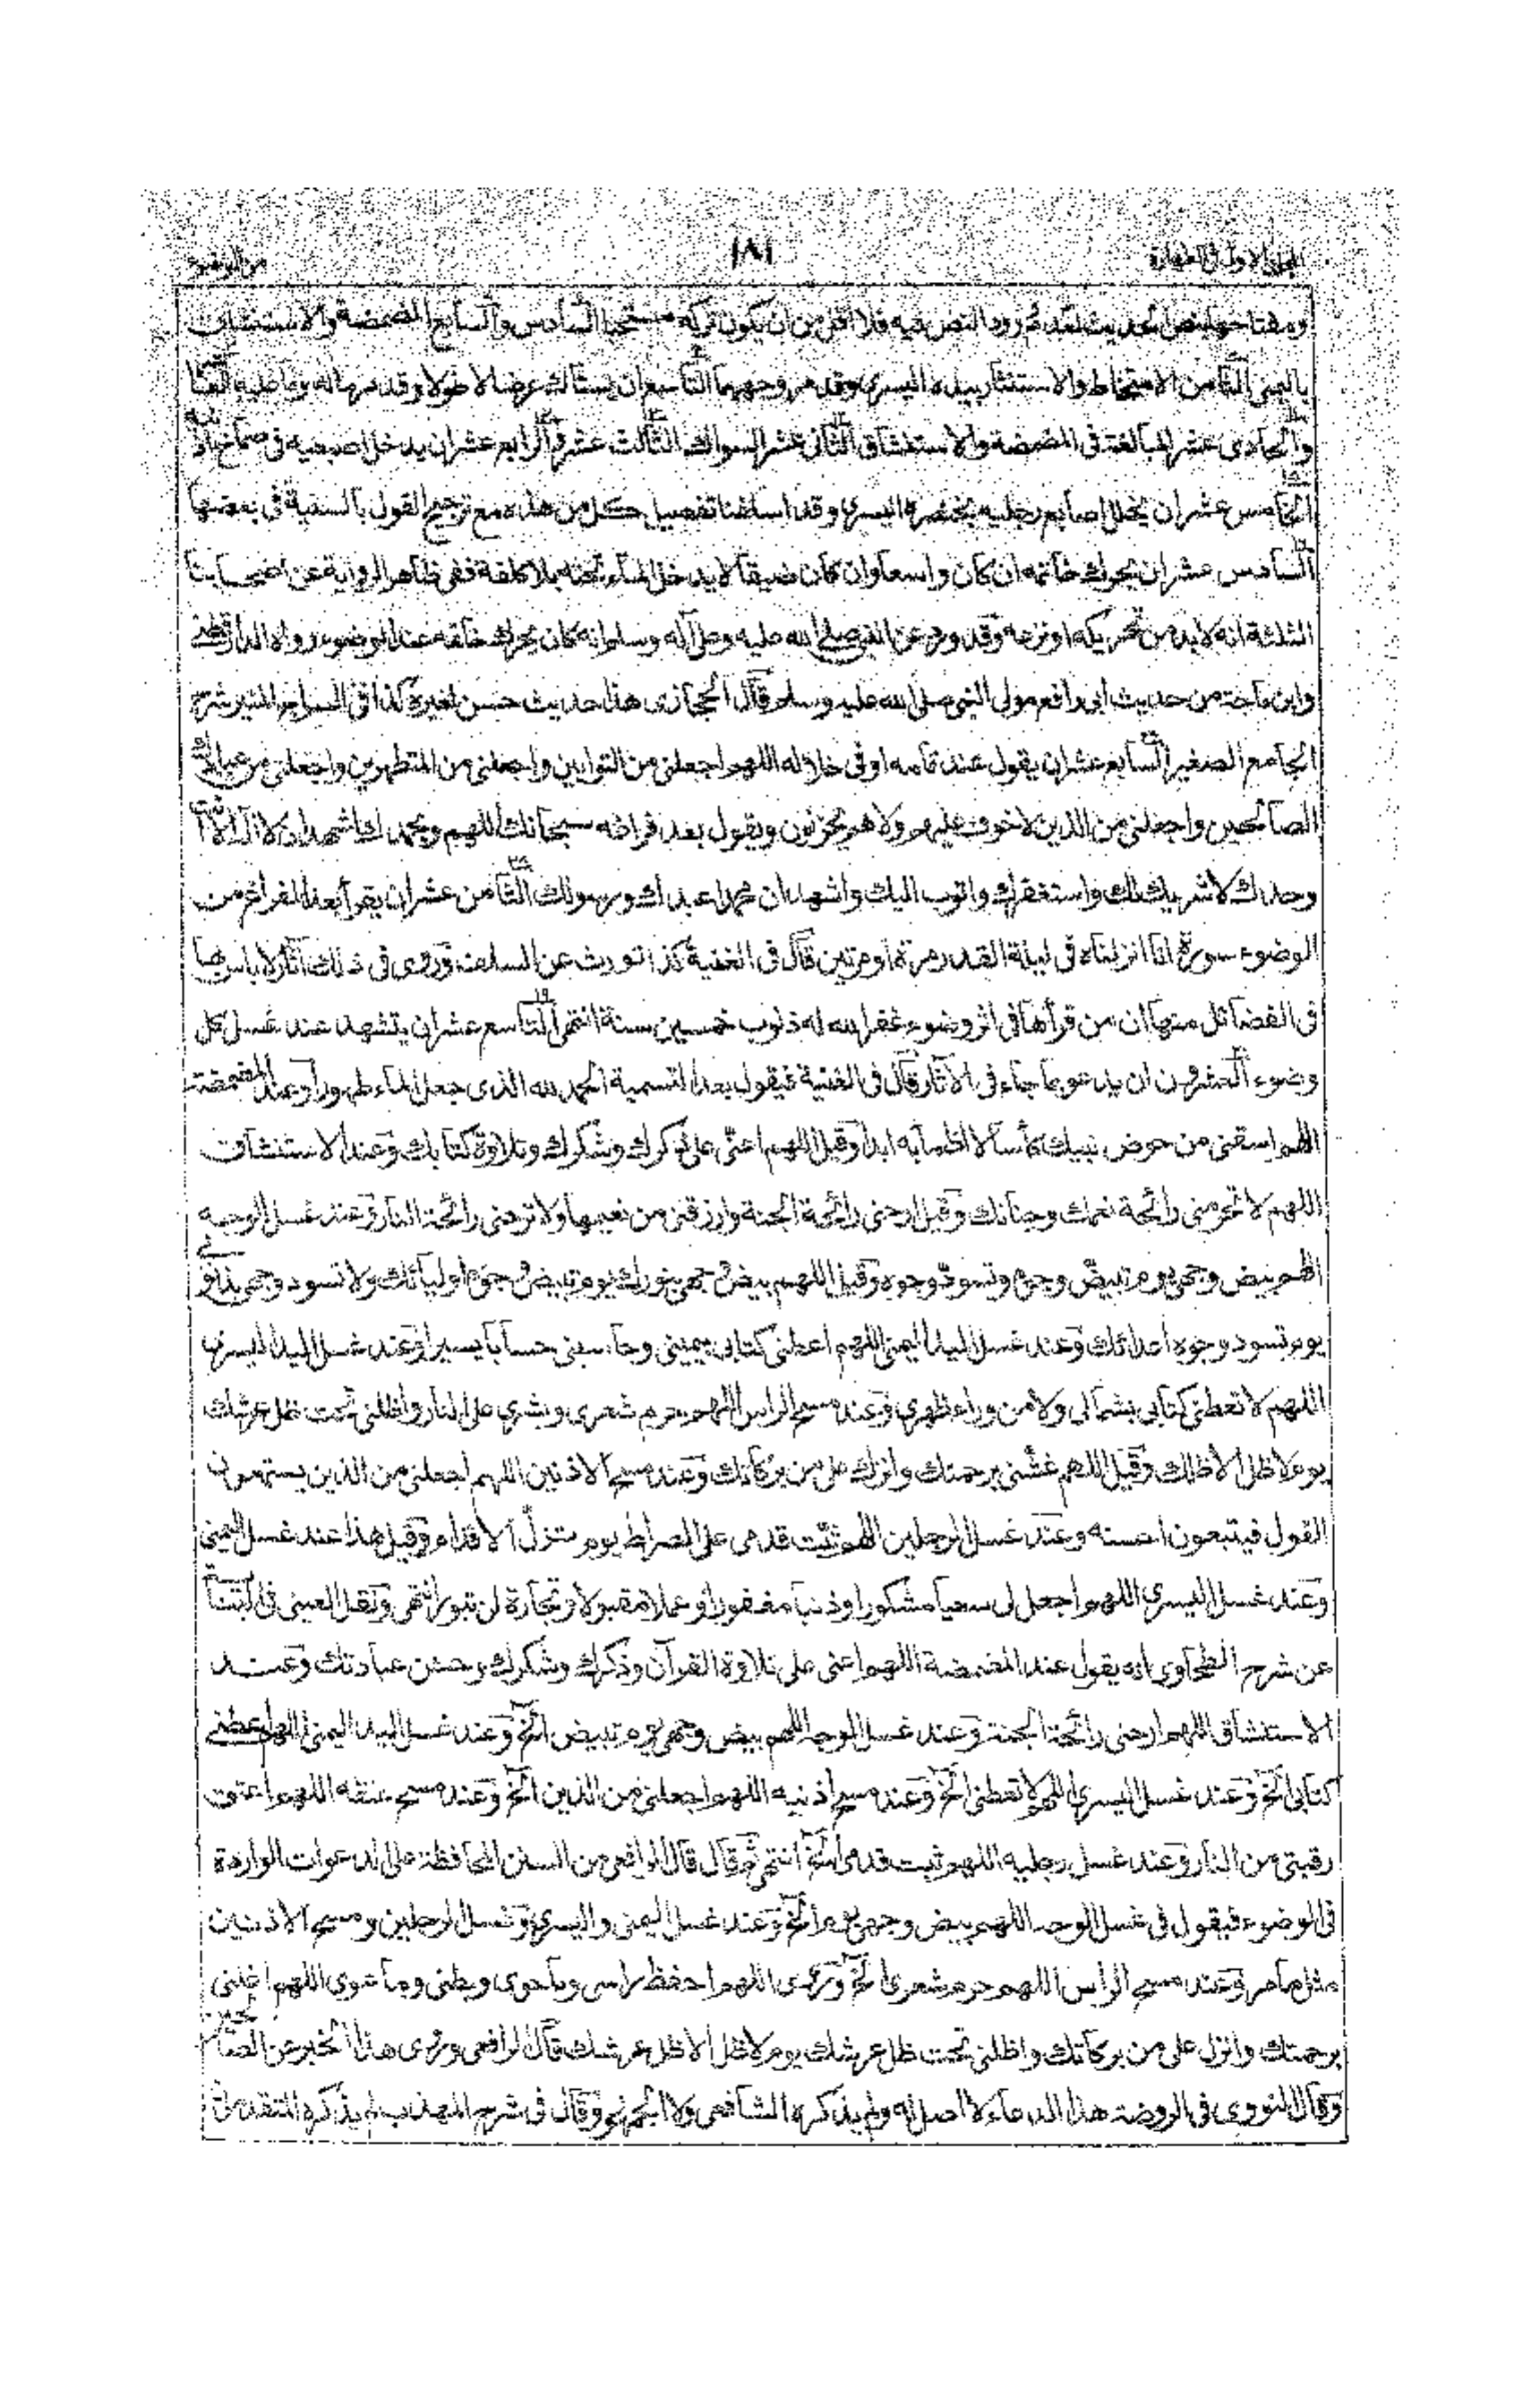 الجزء الاول فى الطهارة ١٨١ من الوضوء
ومفتاحها بنص الحديث بعد ورود النص فيه فلا اقل من ان يكون تركه مستحبا السادس والسابع المضمضة والاستنشاق
باليمنى الثامن الامتخاط والاستنثار بيده اليسرى وقد مر وجههما التاسع ان يستاك عرضا لا طولا وقد مر ماله وما عليه
والحادى عشر المبالغة فى المضمضة والاستنشاق الثانى عشر السواك الثالث عشر والرابع عشر ان يدخل اصبعيه فى صماخ
الخامس عشر ان يخلل اصابع رجليه بخنصره اليسرى وقد اسلفنا تفصيل كل من هذه مع ترجيح القول بالسنية فى بعضها
السادس عشر ان يحرك خاتمه ان كان واسعا وان كان ضيقا لا يدخل الماء تحته بلا كلفة ففى ظاهر الرواية عن اصحابنا
الثلثة انه لا بد من تحريكه او نزعه وقد ورد عن النبى صلى الله عليه وعلى آله وسلم انه كان يحرك خاتمه عند الوضوء رواه الدارقطنى
وابن ماجة من حديث ابى رافع مولى النبى صلى الله عليه وسلم قال الحجازى هذا حديث حسن لغيره كذا فى السراج المنير شرح
الجامع الصغير السابع عشر ان يقول عند تمامه او فى خلاله اللهم اجعلنى من التوابين واجعلنى من المتطهرين واجعلنى من عبادك
الصالحين واجعلنى من الذين لا خوف عليهم ولا هم يحزنون ويقول بعد فراغه سبحانك اللهم وبحمدك اشهد ان لا اله الا انت
وحدك لا شريك لك واستغفرك واتوب اليك واشهد ان محمدا عبدك ورسولك الثامن عشر ان يقرأ بعد الفراغ من
الوضوء سورة انا انزلناه فى ليلة القدر مرة او مرتين قال فى الغنية كذا توورث عن السلف وروى فى ذلك آثار لا باس بها
فى الفضائل منها ان من قرأها فى اثر وضوء غفر الله له ذنوب خمسين سنة انتهى التاسع عشر ان يتشهد عند غسل كل
وضوء العشرون ان يدعو بما جاء فى الآثار قال فى الغنية فيقول بعد التسمية الحمد لله الذى جعل الماء طهورا وعند المضمضة
اللهم اسقنى من حوض نبيك كأسا لا اظمأ به ابدا وقيل اللهم اعنى على ذكرك وشكرك وتلاوة كتابك وعند الاستنشاق
اللهم لا تحرمنى رائحة نعمك وجنانك وقيل ارحنى رائحة الجنة وارزقنى من نعيمها ولا ترحنى رائحة النار وعند غسل الوجه
اللهم بيض وجهى يوم تبيض وجوه وتسود وجوه وقيل اللهم بيض وجهى بنورك يوم تبيض وجوه اوليائك ولا تسود وجهى بذنوبى
يوم تسود وجوه اعدائك وعند غسل اليد اليمنى اللهم اعطنى كتابى بيمينى وحاسبنى حسابا يسيرا وعند غسل اليد اليسرى
اللهم لا تعطنى كتابى بشمالى ولا من وراء ظهرى وعند مسح الراس اللهم حرم شعرى وبشرى على النار واظلنى تحت ظل عرشك
يوم لا ظل الا ظلك وقيل اللهم غشنى برحمتك وانزل على من بركاتك وعند مسح الاذنين اللهم اجعلنى من الذين يستمعون
القول فيتبعون احسنه وعند غسل الرجلين اللهم ثبت قدمى على الصراط يوم تزل الاقدام وقيل هذا عند غسل اليمنى
وعند غسل اليسرى اللهم اجعل لى سعيا مشكورا وذنبا مغفورا وعملا مقبولا وتجارة لن تبور انتهى ونقل العينى فى البناية
عن شرح الطحاوى انه يقول عند المضمضة اللهم اعنى على تلاوة القرآن وذكرك وشكرك وحسن عبادتك وعند
الاستنشاق اللهم ارحنى رائحة الجنة وعند غسل الوجه اللهم بيض وجهى يوم تبيض الخ وعند غسل اليد اليمنى اللهم اعطنى
كتابى الخ وعند غسل اليسرى اللهم لا تعطنى الخ وعند مسح اذنيه اللهم اجعلنى من الذين الخ وعند مسح عنقه اللهم اعتق
رقبتى من النار وعند غسل رجليه اللهم ثبت قدمى الخ انتهى ثم قال قال الرافعى من السنن المحافظة على الدعوات الواردة
فى الوضوء فيقول فى غسل الوجه اللهم بيض وجهى يوم الخ وعند غسل اليمنى واليسرى وغسل الرجلين ومسح الاذنين
مثل ما مر وعند مسح الراس اللهم حرم شعرى الخ وروى اللهم احفظ راسى وما حوى وبطنى وما وعى اللهم اغثنى
برحمتك وانزل على من بركاتك واظلنى تحت ظل عرشك يوم لا ظل الا ظل عرشك قال الرافعى وروى هذا الخبر عن الصالحين
وقال النووى فى الروضة هذا الدعاء لا اصل له ولم يذكره الشافعى ولا الجمهور وقال فى شرح المهذب لم يذكره المتقدمون